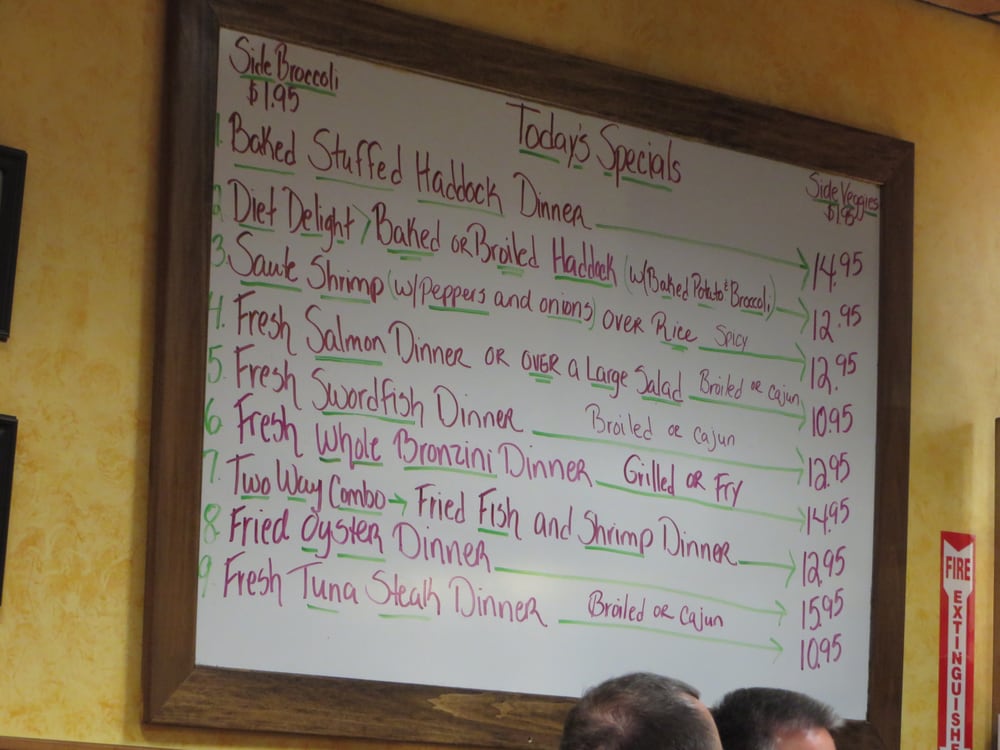 Side Broccoli
$1.95
Today's Specials
Side Veggies
$1.95
1. Baked Stuffed Haddock Dinner 14.95
2. Diet Delight > Baked or Broiled Haddock (w/Baked Potato & Broccoli) 12.95
3. Saute Shrimp (w/Peppers and onions) over Rice Spicy 12.95
4. Fresh Salmon Dinner or over a Large Salad Broiled or cajun 10.95
5. Fresh Swordfish Dinner Broiled or cajun 12.95
6. Fresh Whole Bronzini Dinner Grilled or Fry 14.95
7. Two Way Combo → Fried Fish and Shrimp Dinner 12.95
8. Fried Oyster Dinner 15.95
9. Fresh Tuna Steak Dinner Broiled or cajun 10.95
FIRE
EXTINGUISHE